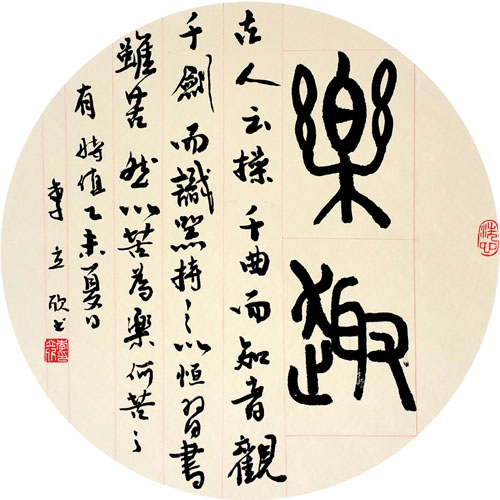 樂趣
古人云操千曲而知音觀
千劍而識器持之以恒習書
雖苦然以苦為樂何苦之
有時值乙未夏日
李立欣书